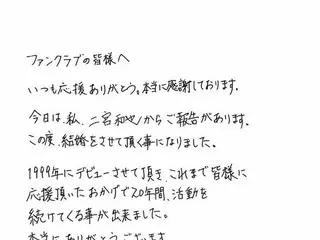 ファンクラブの皆様へ
いつも応援ありがとう。本当に感謝しております。
今日は、私、二宮和也からご報告があります。
この度、結婚をさせて頂く事になりました。
1999年にデビューさせて頂き、これまで皆様に
応援頂いたおかげで20年間、活動を
続けてくる事が出来ました。
本当にありがとうございます